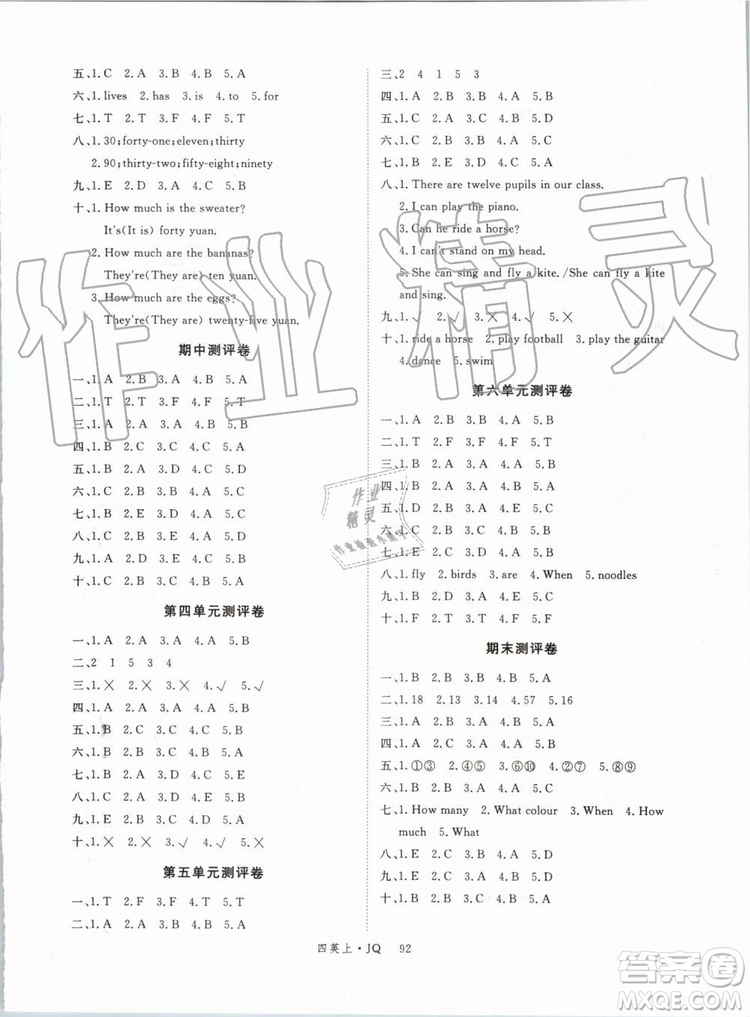 五、1. C 2. A 3. B 4. B 5. A
六、1. lives 2. has 3. is 4. to 5. for
七、1. T 2. T 3. F 4. F 5. T
八、1. 30;forty-one;eleven;thirty
2. 90;thirty-two;fifty-eight;ninety
九、1. E 2. D 3. A 4. B 5. C
十、1. How much is the sweater?
It's(It is) forty yuan.
2. How much are the bananas?
They're(They are) ten yuan.
3. How much are the eggs?
They're(They are) twenty-five yuan.
期中测评卷
一、1. A 2. B 3. A 4. B 5. A
二、1. T 2. T 3. F 4. F 5. T
三、1. A 2. A 3. A 4. B 5. A
四、1. B 2. A 3. C 4. B 5. B
五、1. B 2. A 3. D 4. C 5. B
六、1. C 2. B 3. B 4. C 5. A
七、1. A 2. B 3. A 4. B 5. B
八、1. C 2. B 3. D 4. E 5. A
九、1. D 2. E 3. A 4. C 5. B
十、1. C 2. B 3. B 4. B 5. A
第四单元测评卷
一、1. A 2. A 3. A 4. A 5. B
二、2 1 5 3 4
三、1. × 2. × 3. × 4. √ 5. √
四、1. A 2. B 3. A 4. B 5. A
五、1. B 2. C 3. C 4. C 5. B
六、1. B 2. B 3. A 4. B 5. A
七、1. C 2. A 3. D 4. B 5. E
八、1. B 2. A 3. C 4. B 5. A
九、1. E 2. C 3. A 4. B 5. D
十、1. × 2. × 3. × 4. √ 5. ×
第五单元测评卷
一、1. T 2. F 3. F 4. F 5. T
二、1. A 2. B 3. B 4. B 5. A
三、2 4 1 5 3
四、1. A 2. B 3. A 4. A 5. B
五、1. E 2. C 3. A 4. B 5. D
六、1. C 2. A 3. B 4. B 5. A
七、1. B 2. C 3. A 4. B 5. A
八、1. There are twelve pupils in our class.
2. I can play the piano.
3. Can he ride a horse?
4. I can't stand on my head.
5. She can sing and fly a kite. /She can fly a kite
and sing.
九、1. √ 2. √ 3. × 4. √ 5. ×
十、1. ride a horse 2. play football 3. play the guitar
4. dance 5. swim
第六单元测评卷
一、1. A 2. B 3. B 4. B 5. A
二、1. B 2. B 3. A 4. A 5. B
三、1. A 2. B 3. A 4. B 5. A
四、1. B 2. B 3. A 4. A 5. A
五、1. D 2. E 3. A 4. C 5. B
六、1. C 2. B 3. A 4. B 5. B
七、1. E 2. D 3. A 4. C 5. B
八、1. fly 2. birds 3. are 4. When 5. noodles
九、1. B 2. D 3. A 4. E 5. C
十、1. F 2. T 3. T 4. F 5. F
期末测评卷
一、1. A 2. B 3. B 4. B 5. A
二、1. 18 2. 13 3. 14 4. 57 5. 16
三、1. A 2. B 3. B 4. B 5. A
四、1. A 2. B 3. A 4. B 5. A
五、1. ①③ 2. ④⑤ 3. ⑥⑩ 4. ②⑦ 5. ⑧⑨
六、1. C 2. A 3. B 4. B 5. A
七、1. How many 2. What colour 3. When 4. How
much 5. What
八、1. C 2. A 3. B 4. B 5. A
九、1. E 2. C 3. A 4. B 5. D
十、1. B 2. B 3. A 4. B 5. A
四英上·JQ 92
作业精灵
作业
精灵
答案圈
MXQE.COM